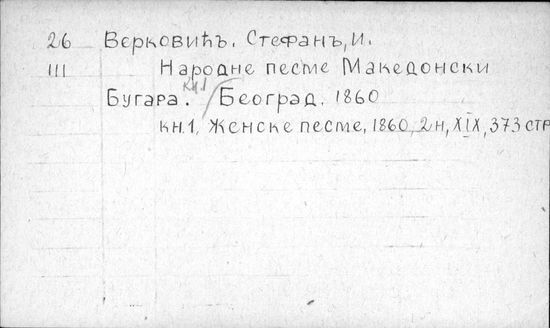 26 Верковићъ. Стефанъ, И.
III Народне песме Македонски
Бугара. кн.1 / Београд. 1860
кн.1, Женске песме, 1860, 2н, XIX, 373 стр